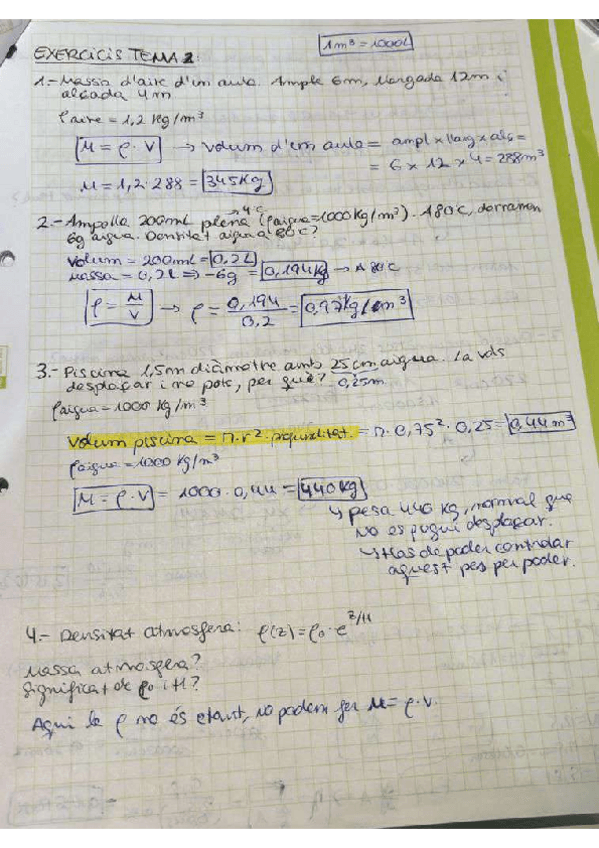 1m³ = 1000L
EXERCICIS TEMA 2:
1.- Massa d'aire d'un aula. Ample 6m, llargada 12m i
alçada 4m
ρaire = 1,2 Kg/m³
M = ρ · V → volum d'em aula = ampl x llarg x alç =
= 6 x 12 x 4 = 288m³
M = 1,2 · 288 = 345Kg
→ 4ºC
2.- Ampolla 200mL plena (ρaigua = 1000 Kg/m³). A 80ºC, derramen
6g aigua. Densitat aigua a 80ºC?
Volum = 200mL = 0,2L
Massa = 0,2L => -6g = 0,194Kg → A 80ºC
ρ = M/V → ρ = 0,194/0,2 = 0,97
3.- Piscina 1,5m diàmetre amb 25cm aigua. La vols
desplaçar i no pots, per què? 0,25m
ρaigua = 1000 Kg/m³
Volum piscina = π · r² · = π · 0,75² · 0,25 = 0,44m³
ρaigua = 1000 Kg/m³
M = ρ · V = 1000 · 0,44 = 440Kg
↳ pesa 440 Kg, normal que
no es pugui desplaçar.
↳ Has de poder controlar
aquest pes per poder.
4.- Densitat atmosfera: ρ(z) = ρ₀ · e^z/H
Massa atmosfera?
Significat de ρ₀ i H?
Aquí la ρ no és ctant, no podem fer M = ρ · V.